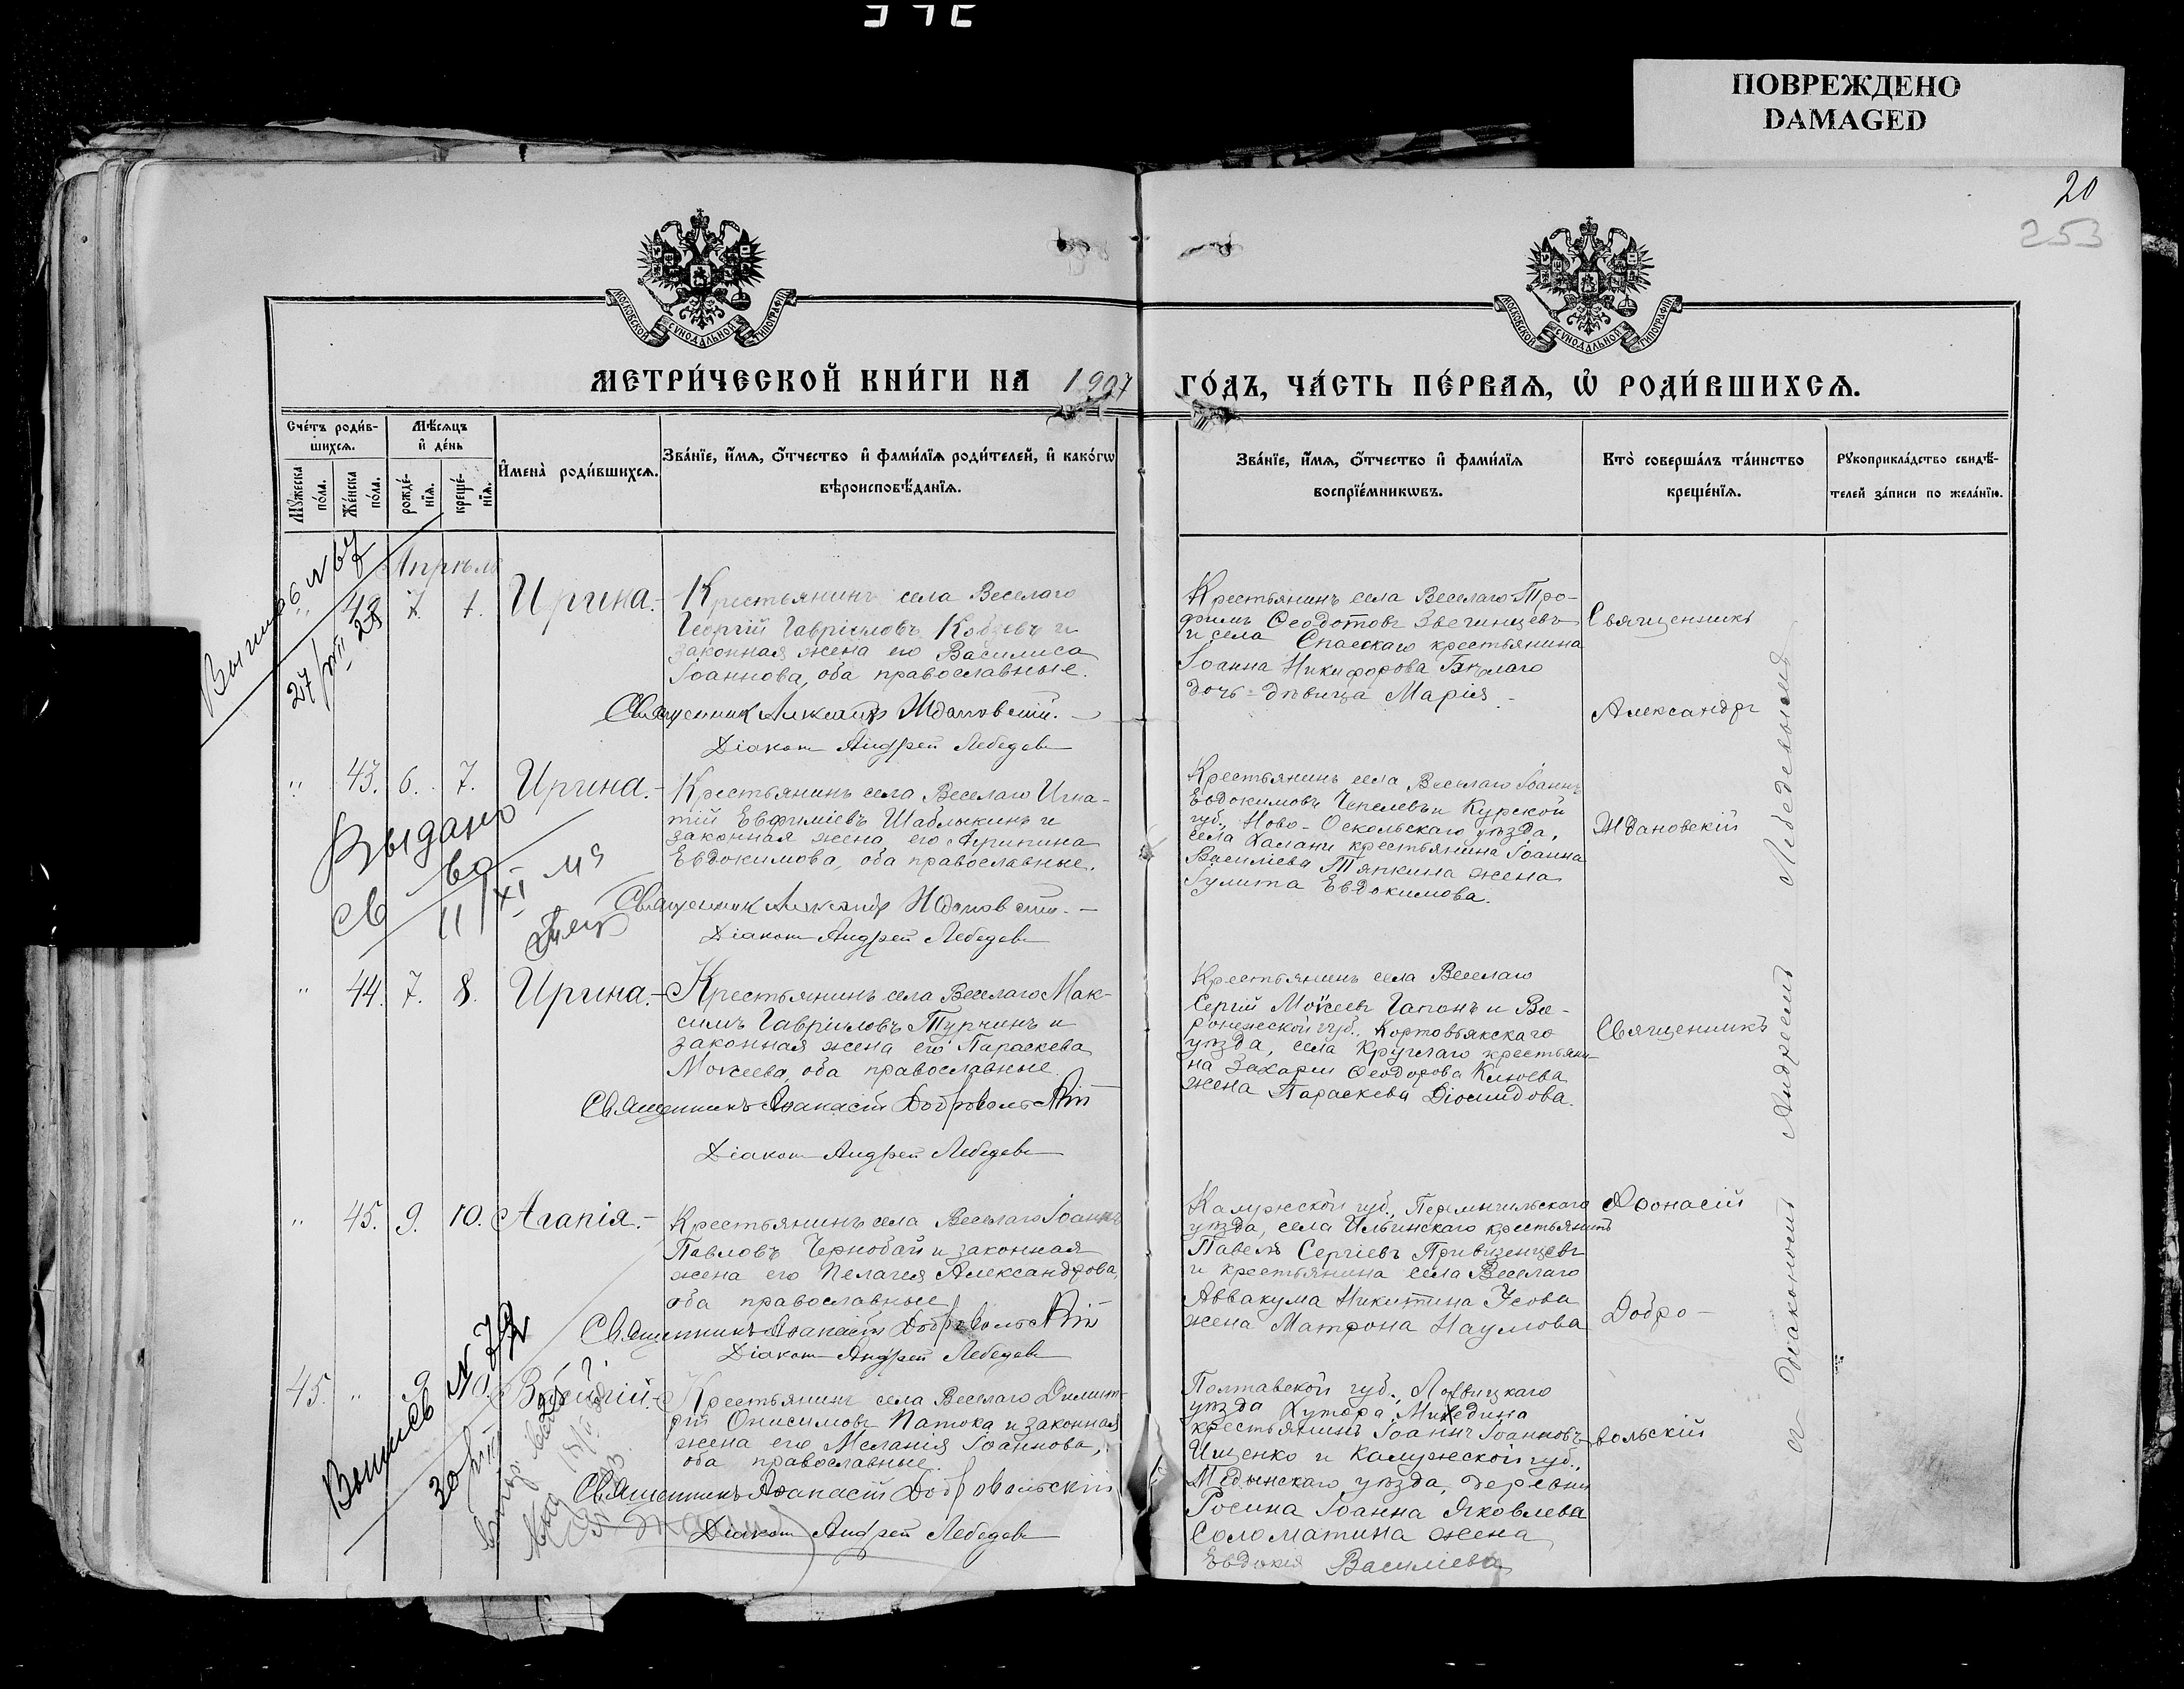 ПОВРЕЖДЕНО
DAMAGED
20
253
МОСКОВСКОЙ СѴНОДАЛЬНОЙ ТИПОГРАФІИ
МОСКОВСКОЙ СѴНОДАЛЬНОЙ ТИПОГРАФІИ
МЕТРИ́ЧЕСКОЙ КНИ́ГИ НА 1907 ГО́ДЪ, ЧА́СТЬ ПЕ́РВАѦ, Ѡ РОДИ́ВШИХСѦ.
Сче́тъ роди́в-
шихсѧ.
Мѣ́сѧцъ
и де́нь
Мꙋ́жеска по́ла.
Же́нска по́ла.
рожде́-нїѧ.
креще́-нїѧ.
И҆мена̀ роди́вшихсѧ.
Зва́нїе, и҆́мѧ, ѻ҆́тчество и҆ фами́лїѧ роди́телей, и҆ како́гѡ
вѣроисповѣ́данїѧ.
Зва́нїе, и҆́мѧ, ѻ҆́тчество и҆ фами́лїѧ
воспрїе́мникѡвъ.
Кто̀ соверша́лъ та́инство
креще́нїѧ.
Рꙋкоприкла́дство свидѣ́-
телей за́писи по жела́нїю.
Апрѣль
" 42 7. 7. Ирина.-
Крестьянинъ села Веселаго
Георгій Гавріиловъ Кобзевъ и
законная жена его Василиса
Іоаннова, оба православные.
Священник Александр Ждановскій.
Діакон Андрей Лебедев
Крестьянинъ села Веселаго Тро-
фимъ Ѳеодотовъ Звегинцевъ
и села Спасскаго крестьянина
Іоанна Никифорова Бѣлаго
дочь-дѣвица Марія.-
Священникъ
Александръ
" 43. 6. 7. Ирина.-
Крестьянинъ села Веселаго Игна-
тій Евфиміевъ Шаблыкинъ и
законная жена его Агрипина
Евдокимова, оба православные.
Священник Александр Ждановскій.-
Діакон Андрей Лебедев
Крестьянинъ села Веселаго Іоаннъ
Евдокимовъ Чепелевъ и Курской
губ., Ново-Оскольскаго уѣзда,
села Халани крестьянина Іоанна
Василіева Тяпкина жена
Іулита Евдокимова.
Ждановскій
Выдано
11/XI
" 44. 7. 8. Ирина.-
Крестьянинъ села Веселаго Мак-
симъ Гавріиловъ Турчинъ и
законная жена его Параскева
Моисеева, оба православные.
Священникъ Аѳанасій Добровольскій
Діакон Андрей Лебедев
Крестьянинъ села Веселаго
Сергій Моѵсеевъ Гапонъ и Во-
ронежской губ., Коротоякскаго
уѣзда, села Круглаго крестьяни-
на Захаріи Ѳеодорова Клюева
жена Параскева Діомидова.
Священникъ
" 45. 9. 10. Агапія.-
Крестьянинъ села Веселаго Іоаннъ
Павловъ Чернобай и законная
жена его Пелагея Александрова,
оба православные
Священникъ Аѳанасій Добровольскій
Діакон Андрей Лебедев
Калужской губ., Перемышльскаго
уѣзда, села Ильинскаго крестьянинъ
Павелъ Сергіевъ Привезенцевъ
и крестьянина села Веселаго
Аввакума Никитина Усова
жена Матрона Наумова
Аѳонасій
Добро-
45. " 9 Василій.-
Крестьянинъ села Веселаго Димит-
рій Онисимовъ Патока и законная
жена его Меланія Іоаннова,
оба православные.
Священникъ Аѳанасій Добровольскій
Діакон Андрей Лебедев
Полтавской губ., Лохвицкаго
уѣзда Хутора Михедина
крестьянинъ Іоаннъ Іоанновъ
Ищенко и Калужской губ.,
Медынскаго уѣзда, деревни
Росина Іоанна Яковлева
Соломатина жена
Евдокія Василіева
вольскій
съ діакономъ Андреемъ Лебедевымъ